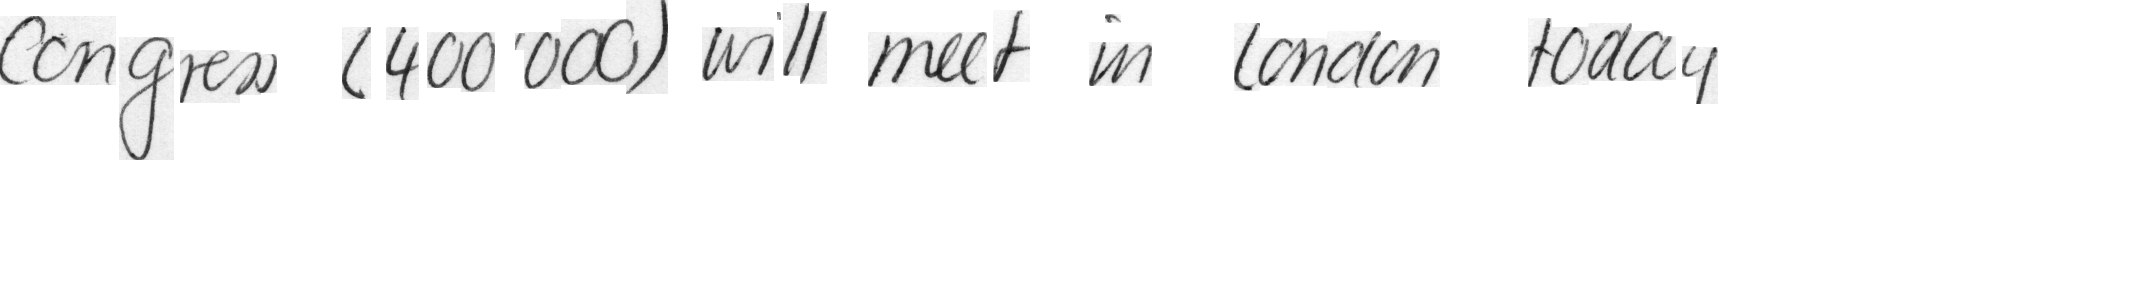 Congress (400'000) will meet in London today